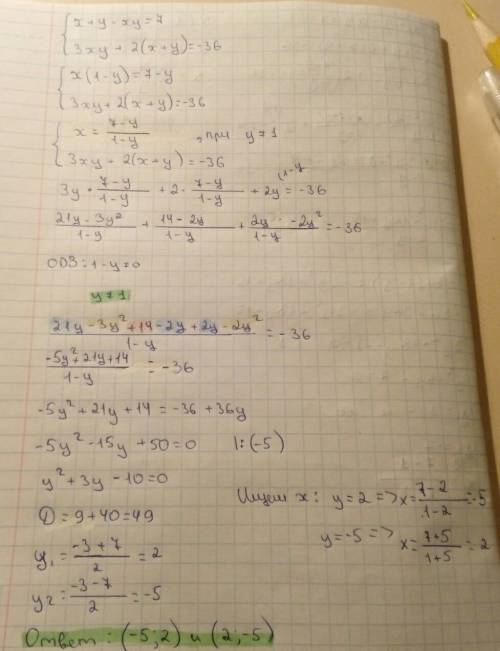 { x + y - xy = 7
{ 3xy + 2(x+y) = -36
{ x(1-y) = 7-y
{ 3xy + 2(x+y) = -36
{ x = (7-y)/(1-y) , при y≠1
{ 3xy + 2(x+y) = -36
3y · (7-y)/(1-y) + 2 · (7-y)/(1-y) + 2y (1-y = -36
(21y - 3y²)/(1-y) + (14-2y)/(1-y) + (2y - 2y²)/(1-y) = -36
ОДЗ: 1-y≠0
y≠1
(21y - 3y² + 14 - 2y + 2y - 2y²)/(1-y) = -36
(-5y² + 21y + 14)/(1-y) = -36
-5y² + 21y + 14 = -36 + 36y
-5y² - 15y + 50 = 0 |:(-5)
y² + 3y - 10 = 0
D = 9 + 40 = 49
y₁ = (-3+7)/2 = 2
y₂ = (-3-7)/2 = -5
Ищем x: y = 2 => x = (7-2)/(1-2) = -5
y = -5 => x = (7+5)/(1+5) = 2
Ответ: (-5; 2) и (2; -5)